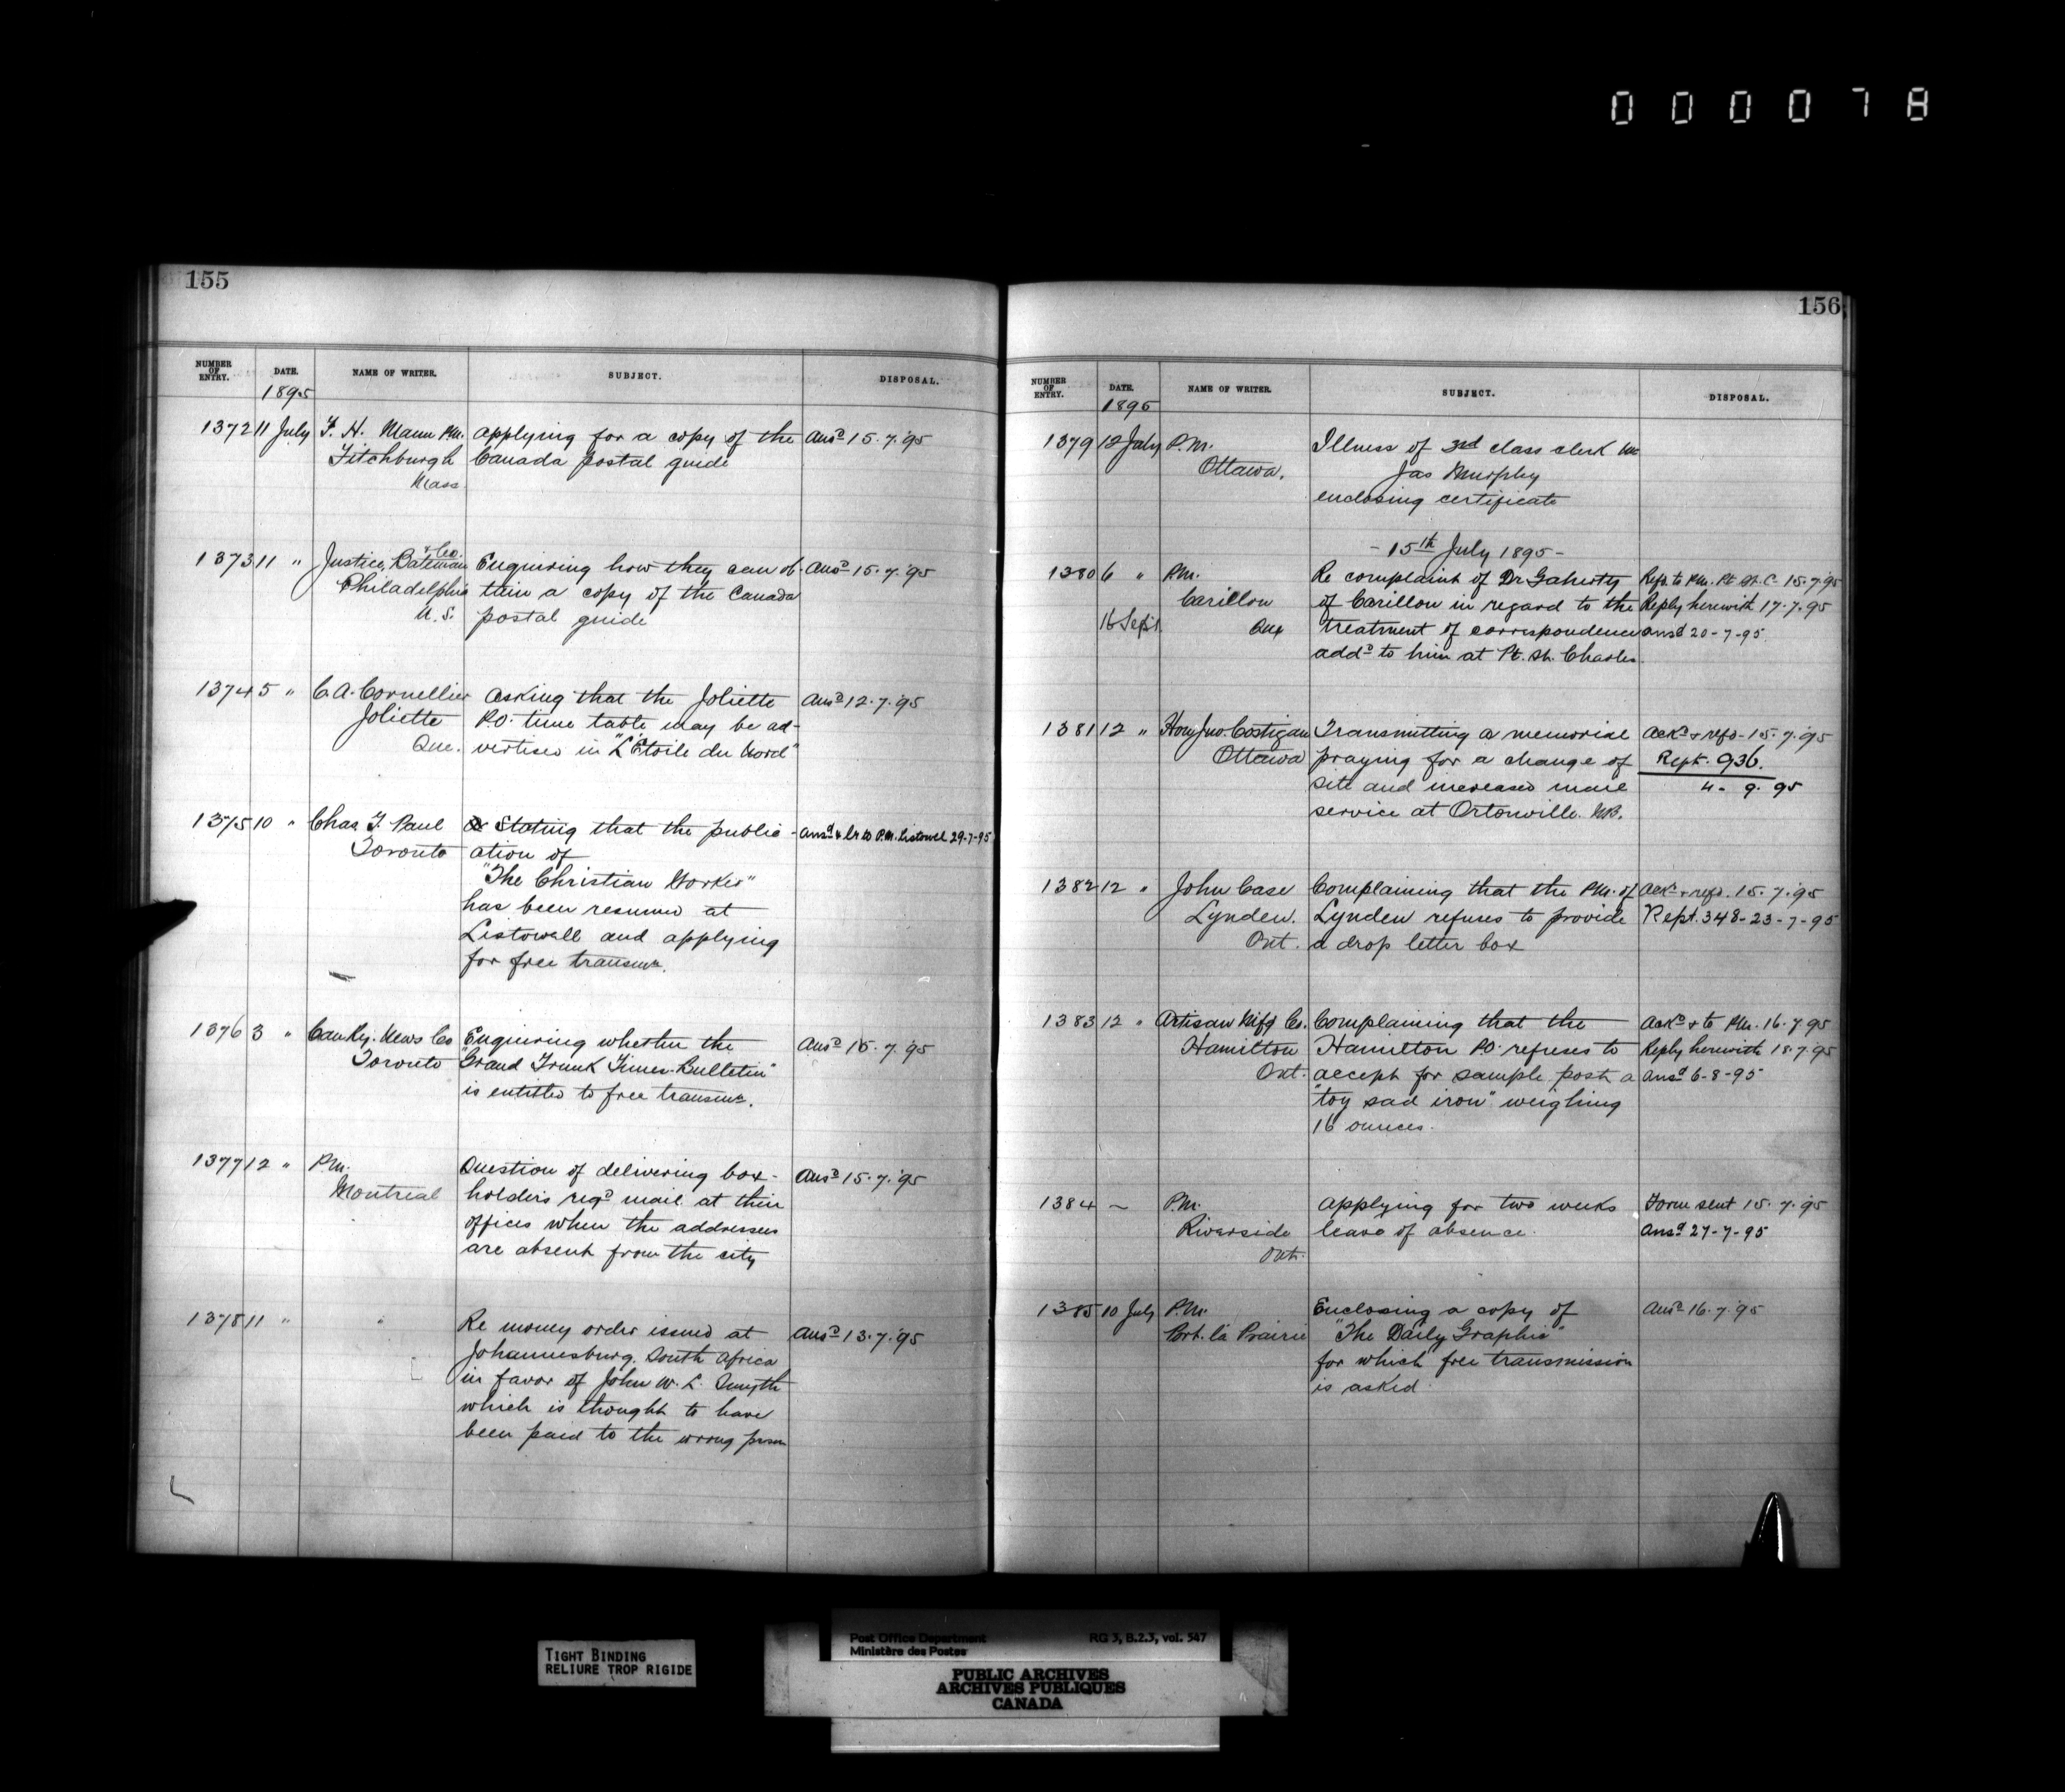 000078
155
NUMBER OF ENTRY. DATE. NAME OF WRITER. SUBJECT. DISPOSAL.
1895
1372 11 July F. H. Mann P.M. Applying for a copy of the Ansd 15.7.'95
Fitchburgh Canada postal guide
Mass.
1373 11 " Justice, Bateman & Co. Enquiring how they can ob- Ansd 15.7.'95
Philadelphia tain a copy of the Canada
U.S. postal guide
1374 5 " C.A. Cornellier Asking that the Joliette Ansd 12.7.'95
Joliette P.O. time table may be ad-
Que. vertised in "L'Etoile du Nord"
1375 10 " Chas. F. Paul Stating that the public- Ansd & lr to P.M. Listowel 29-7-95
Toronto ation of
"The Christian Worker"
has been resumed at
Listowell and applying
for free transmn.
1376 3 " Can. Ry. News Co Enquiring whether the Ansd 15.7.'95
Toronto "Grand Trunk Times-Bulletin"
is entitled to free transmn.
1377 12 " P.M. Question of delivering box- Ansd 15.7.'95
Montreal holders regd mail at their
offices when the addressees
are absent from the city
1378 11 " " Re money order issued at Ansd 13.7.'95
Johannesburg, South Africa
in favor of John W. L. Smyth
which is thought to have
been paid to the wrong person
156
NUMBER OF ENTRY. DATE. NAME OF WRITER. SUBJECT. DISPOSAL.
1895
1379 12 July P.M. Illness of 3rd class clerk Mr
Ottawa. Jas Murphy
enclosing certificate
- 15th July 1895 -
1380 6 " P.M. Re complaint of Dr Gaherty Refd to P.M. Pt. St. C. 15.7.'95
Carillon of Carillon in regard to the Reply herewith 17.7.95
16 Sept. Que treatment of correspondence ansd 20-7-95.
addd to him at Pt. St. Charles.
1381 12 " Hon. Jno. Costigan Transmitting a memorial Ackd & refd - 15.7.'95
Ottawa praying for a change of Rept. 936.
site and increased mail 4 - 9. 95
service at Ortonville. N.B.
1382 12 " John Case Complaining that the P.M. of Ackd & refd. 15.7.'95
Lynden. Lynden refuses to provide Rept. 348-23-7-95
Ont. a drop letter box
1383 12 " Artisan Mfg Co. Complaining that the Ackd & to P.M. 16.7.95
Hamilton Hamilton P.O. refuses to Reply herewith 18.7.'95
Ont. accept for sample post a Ansd 6-8-95
"toy sad iron" weighing
16 ounces.
1384 ~ P.M. Applying for two weeks Form sent 15.7.'95
Riverside leave of absence. Ansd 27-7-95
Ont.
1385 10 July P.M. Enclosing a copy of Ansd 16.7.'95
Port. la Prairie "The Daily Graphic"
for which free transmission
is asked.
TIGHT BINDING
RELIURE TROP RIGIDE
Post Office Department RG 3, B.2.3, vol. 547
Ministère des Postes
PUBLIC ARCHIVES
ARCHIVES PUBLIQUES
CANADA